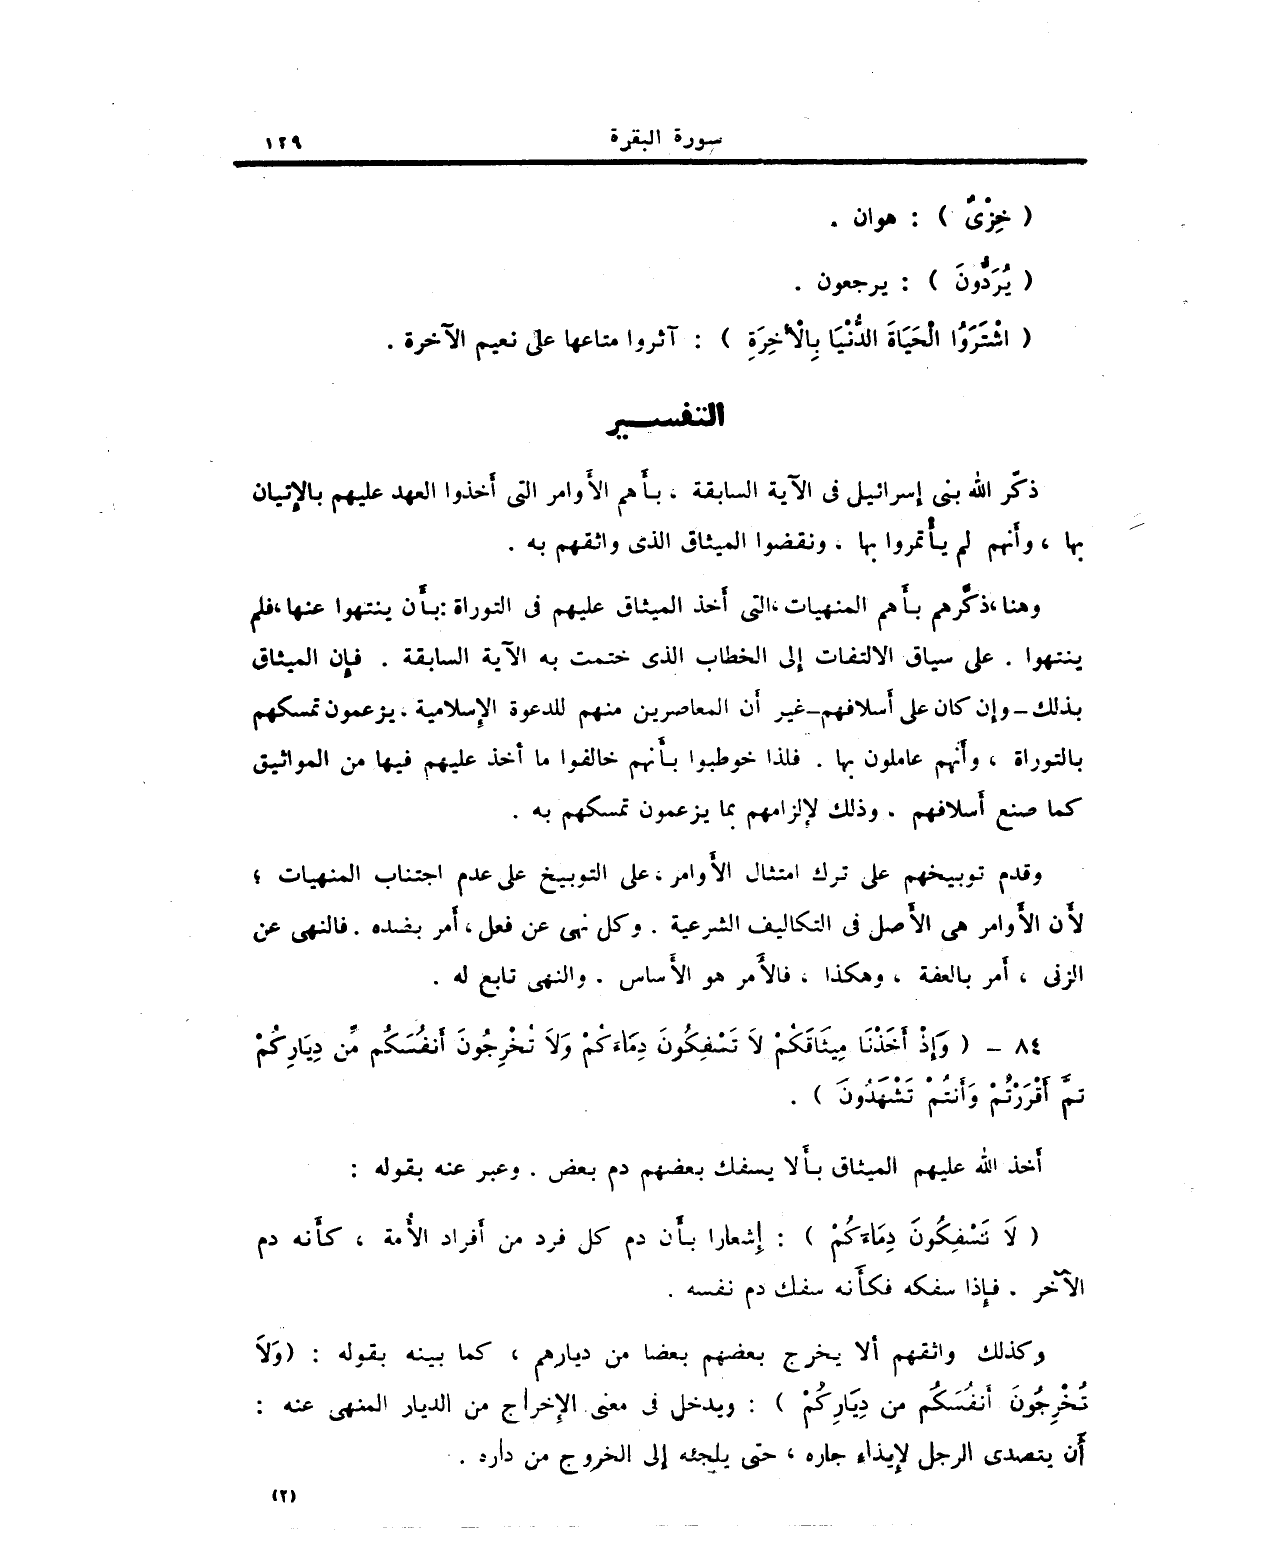 سورة البقرة ١٢٩
( خِزْىٌ ) : هوان .
( يُرَدُّونَ ) : يرجعون .
( اشْتَرَوُا الْحَيَاةَ الدُّنْيَا بِالْأَخِرَةِ ) : آثروا متاعها على نعيم الآخرة .
التفسير
ذكّر الله بنى إسرائيل فى الآية السابقة ، بأهم الأوامر التى أخذوا العهد عليهم بالإتيان
بها ، وأنهم لم يأتمروا بها . ونقضوا الميثاق الذى واثقهم به .
وهنا ،ذكَّرهم بأهم المنهيات ،التى أخذ الميثاق عليهم فى التوراة :بأن ينتهوا عنها ،فلم
ينتهوا . على سياق الالتفات إلى الخطاب الذى ختمت به الآية السابقة . فإن الميثاق
بذلك - وإن كان على أسلافهم - غير أن المعاصرين منهم للدعوة الإسلامية ، يزعمون تمسكهم
بالتوراة ، وأنهم عاملون بها . فلذا خوطبوا بأنهم خالفوا ما أخذ عليهم فيها من المواثيق
كما صنع أسلافهم . وذلك لإلزامهم بما يزعمون تمسكهم به .
وقدم توبيخهم على ترك امتثال الأوامر ، على التوبيخ على عدم اجتناب المنهيات ؛
لأن الأوامر هى الأصل فى التكاليف الشرعية . وكل نهى عن فعل ، أمر بضده . فالنهى عن
الزنى ، أمر بالعفة ، وهكذا ، فالأمر هو الأساس . والنهى تابع له .
٨٤ - ( وَإِذْ أَخَذْنَا مِيثَاقَكُمْ لاَ تَسْفِكُونَ دِمَاءَكُمْ وَلاَ تُخْرِجُونَ أَنفُسَكُم مِّن دِيَارِكُمْ
ثمَّ أَقْرَرْتُمْ وَأَنتُمْ تَشْهَدُونَ ) .
أخذ الله عليهم الميثاق بألا يسفك بعضهم دم بعض . وعبر عنه بقوله :
( لَا تَسْفِكُونَ دِمَاءَكُمْ ) : إشعارا بأن دم كل فرد من أفراد الأُمة ، كأنه دم
الآخر . فإذا سفكه فكأنه سفك دم نفسه .
وكذلك واثقهم ألا يخرج بعضهم بعضا من ديارهم ، كما بينه بقوله : (وَلاَ
تُخْرِجُونَ أَنفُسَكُم من دِيَارِكُمْ ) : ويدخل فى معنى الإخراج من الديار المنهى عنه :
أن يتصدى الرجل لإيذاء جاره ، حتى يلجئه إلى الخروج من داره .
(٢)